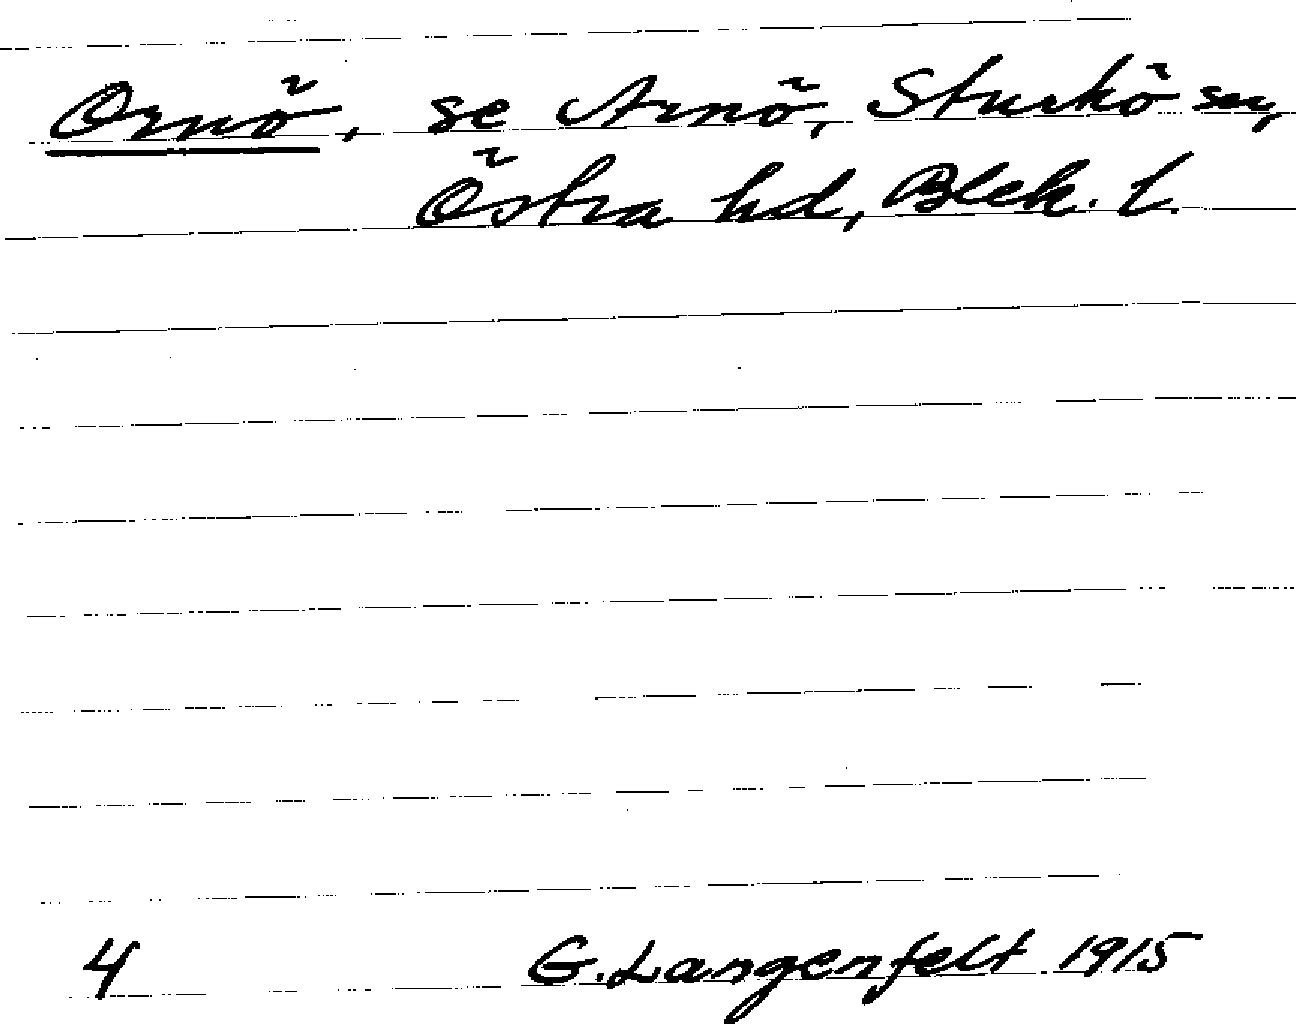 Ornö, se Arnö, Sturkö sn,
Östra hd, Blek. l.
4 G. Langenfelt 1915